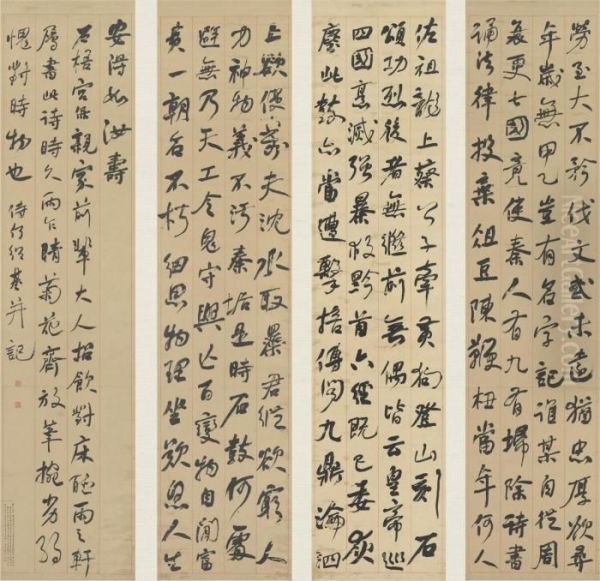 勞至大不矜伐文武未遠猶忠厚欲尋
年歲無甲乙豈有名字記誰某自從周
衰更七國竟使秦人有九有掃除詩書
誦法律投棄俎豆陳鞭杻當年何人
佐祖龍上蔡公子牽黃狗登山刻石
頌功烈後者無繼前無偶皆云皇帝巡
四國烹滅强暴救黔首六經既已委灰
塵此鼓亦當遭擊掊傳聞九鼎淪泗
上欲使萬夫沈水取暴君縱欲窮人
力神物義不污秦垢是時石鼓何處
避無乃天工令鬼守興亡百變物自閒富
貴一朝名不朽細思物理坐歎息人生
安得如汝壽
石梧宮保親家前輩大人招飲對床聽雨之軒
屬書此詩時久雨乍晴菊花齊放筆腕劣弱
愧對時物也 侍何紹基并記